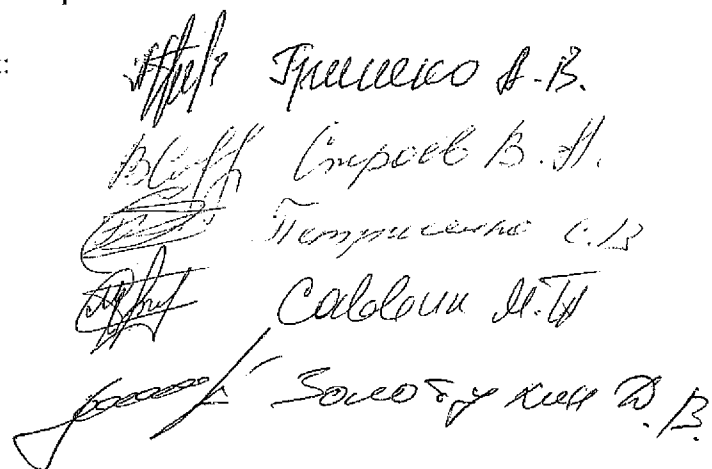 Гриценко А.В.
Строев В.Н.
Петрисенко С.В
Саввин М.П
Золотухин Д.В.